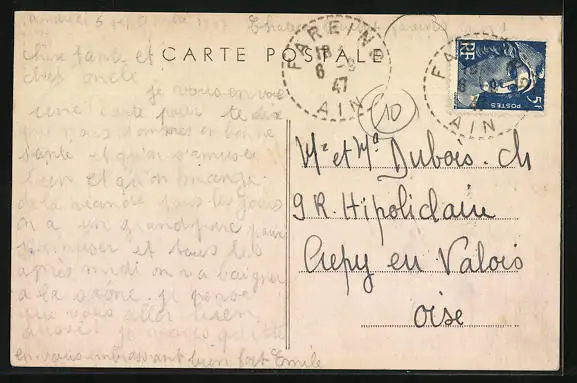 CARTE POSTALE
FAREINS
18
6 - 8
47
AIN
RF
5F
POSTES
FAREINS
AIN
10
chère tante et
cher oncle
je vous envoie
une carte pour te dire
que nous sommes en bonne
santé et qu'on s'amuse
bien et qu'on mange
de la viande tous les jours
on a un grand parc pour
s'amuser et tous les
après midi on va baigner
a la saône. je pense
que vous allez bien
aussi. je
en vous embrassant bien fort Emile
Mr et Me Dubois. Ch
9 R. Hipolidain
Crepy en Valois
oise